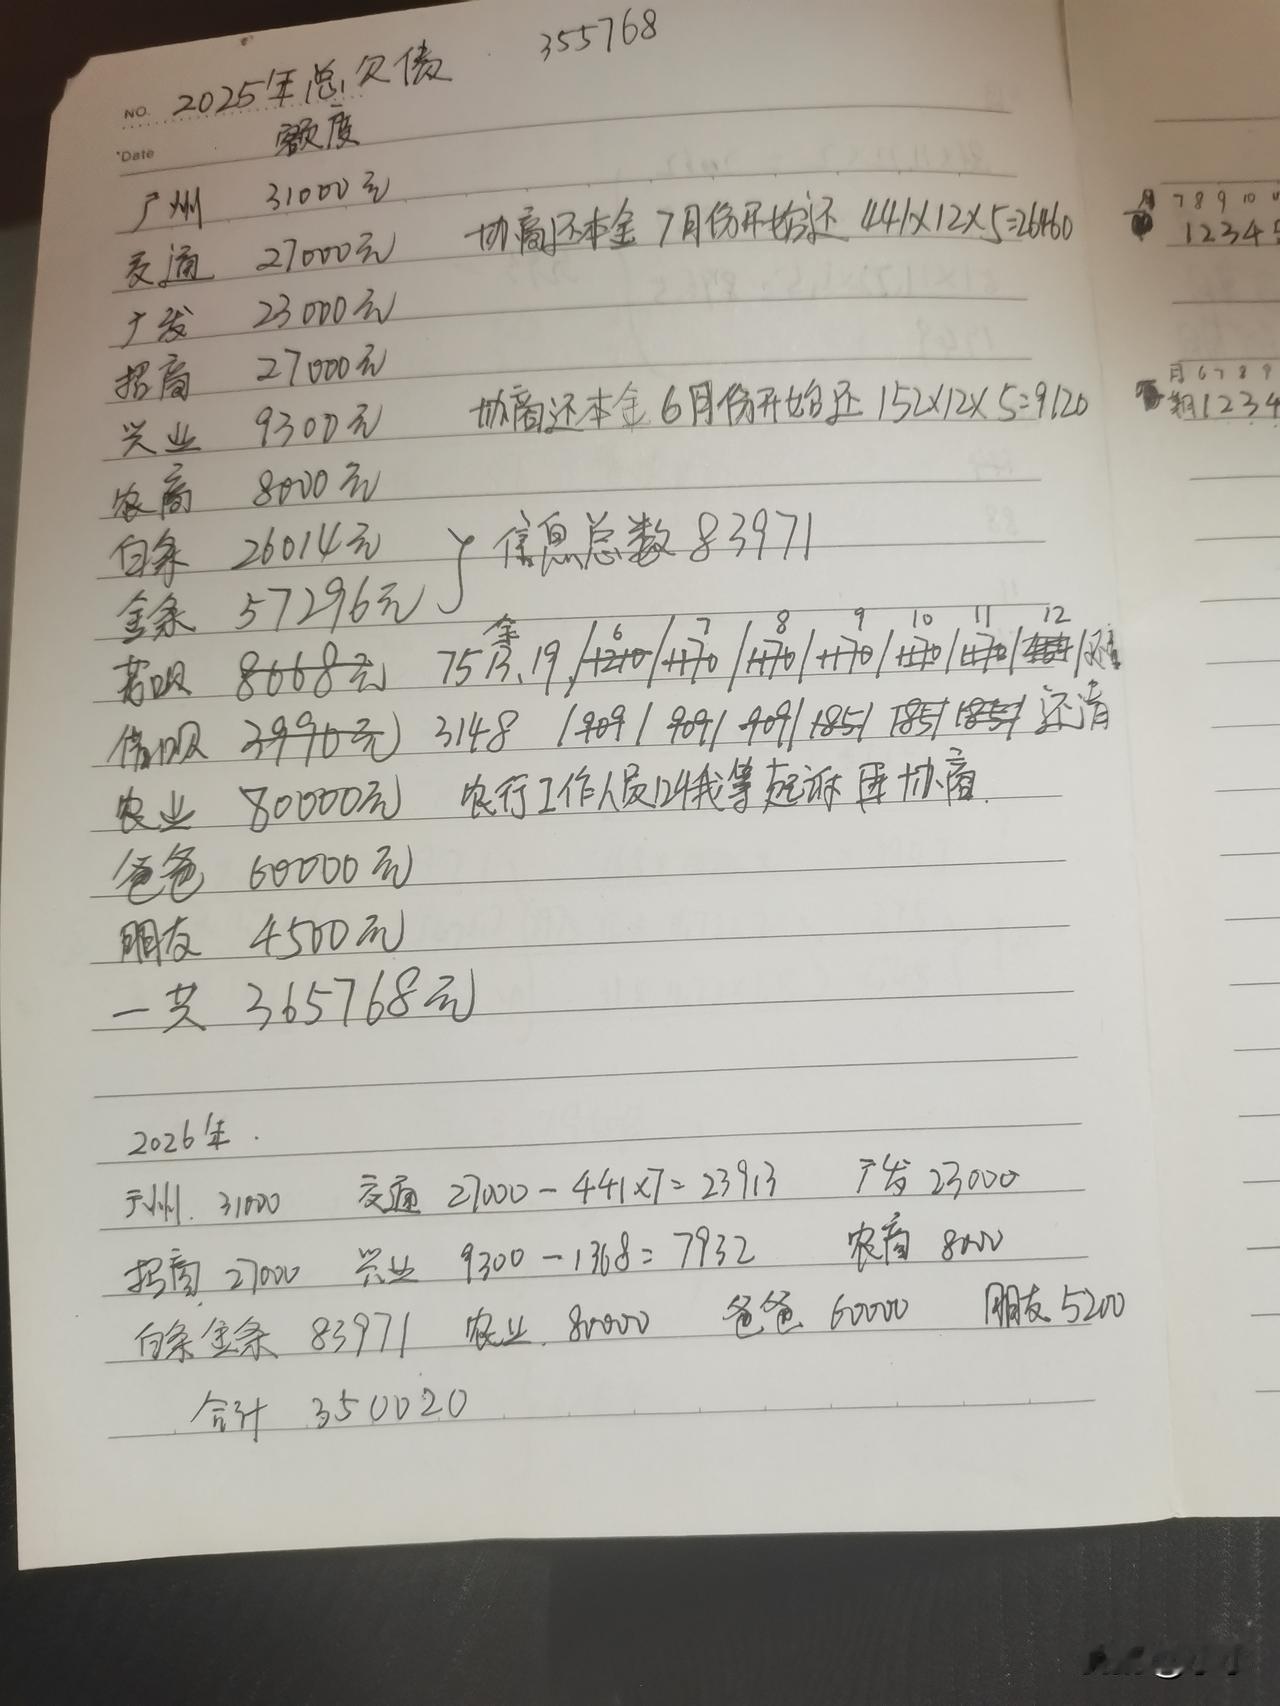 2025年总欠债 355768
NO.
额度
Date
广州 31000元
交通 27000元 协商还本金 7月份开始还 441×12×5=26460
广发 23000元
招商 27000元
兴业 9300元 协商还本金 6月份开始还 152×12×5=9120
农商 8000元
白条 26014元 } 信息总数 83971
金条 57296元
6 7 8 9 10 11 12
8668元 余 7513.19 /1210/1170/1170/1170/1170/1170/
借呗 3990元 3148 /909/ 909/ 909/ 185/ 185/ 185/ 还清
农业 80000元 农行工作人员叫我等起诉 再协商
爸爸 60000元
朋友 4500元
一共 365768元
2026年.
广州. 31000 交通 27000-441×7=23913 广发 23000
招商 27000 兴业 9300-1368=7932 农商 8000
白条金条 83971 农业. 80000 爸爸 60000 朋友 5200
合计 350020
月 7 8 9 10
1 2 3 4 5
月 6 7 8 9
期 1 2 3 4